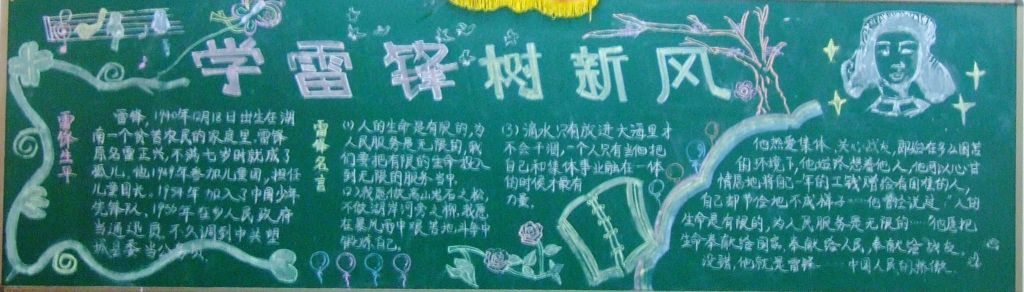 学雷锋树新风
雷锋生平
雷锋,1940年12月18日出生在湖
南一个贫苦农民的家庭里,雷锋
原名雷正兴,不满七岁时就成了
孤儿,他1949年参加儿童团,担任
儿童团长。1954年加入了中国少年
先锋队、1956年在乡人民政府
当通迅员,不久调到中共望
城县委当公务员
雷锋名言
(1)人的生命是有限的,为
人民服务是无限的,我
们要把有限的生命投入
到无限的服务当中。
(2)我愿做高山岩石之松,
不做湖岸河旁之柳,我愿
在暴风雨中艰苦地斗争中
锻炼自己。
(3)滴水只有放进大海里才
不会干涸,一个人只有当他把
自己和集体事业融在一体
的时候才最有
力量。
他热爱集体、关心战友,即使在多么困苦
的环境下,他始终想着他人,他可以心甘
情愿地将自己一年的工钱赠给有困难的人,
自己却节俭地不成样子……他曾经说过:"人的
生命是有限的,为人民服务是无限的……"他是把
生命奉献给国家,奉献给人民,奉献给战友。
没错,他就是雷锋……中国人民的骄傲